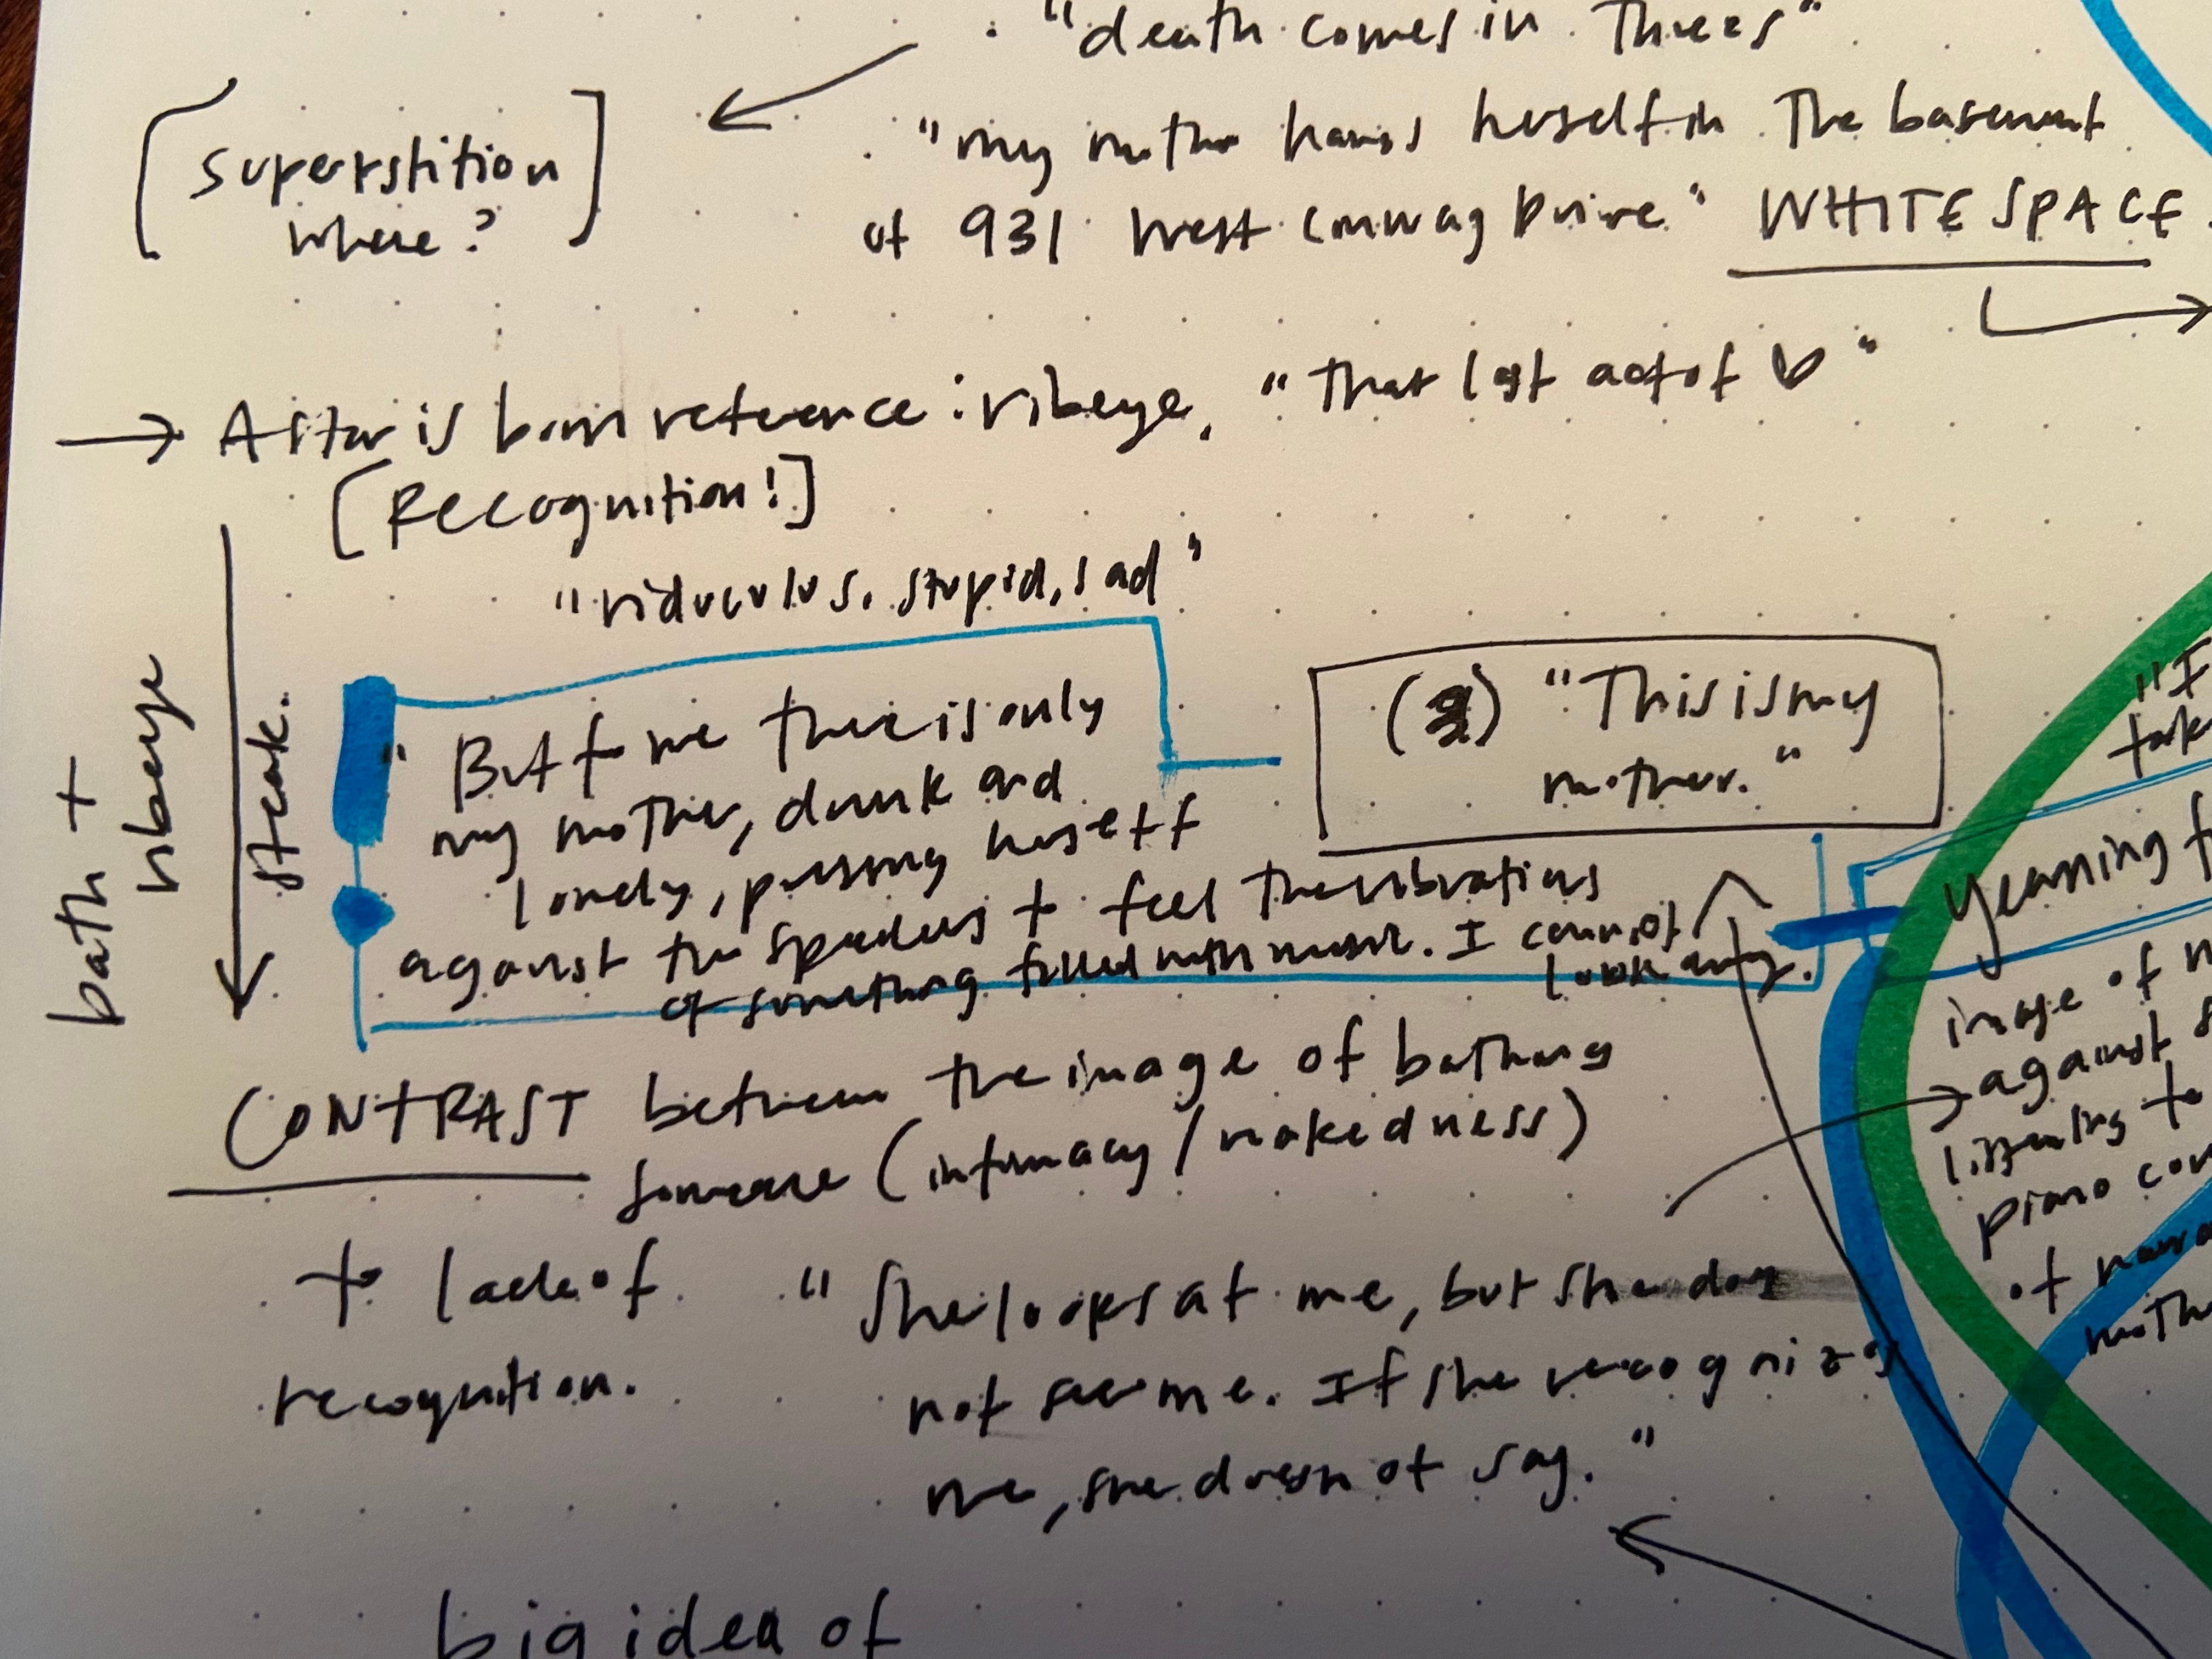 "death comes in Threes"
"my mother hangs herself in The basement
of 931 West Conway Drive" WHITE SPACE
[Superstition
where?]
→ A star is born reference: ribeye, "That last act of ♡"
[Recognition!]
"riduculus, stupid, sad"
bath +
ribeye
steak.
"But for me there is only
my mother, drunk and
lonely, pressing herself
against the speakers to feel the vibrations
of something filled with music. I cannot
look away.
(2) "This is my
mother."
"I
yearning f
image of
against s
listening to
piano con
of
moth
CONTRAST between the image of bathing
someone (intimacy/nakedness)
to lack of
recognition.
"She looks at me, but she does
not see me. If she recognizes
me, she does not say."
big idea of